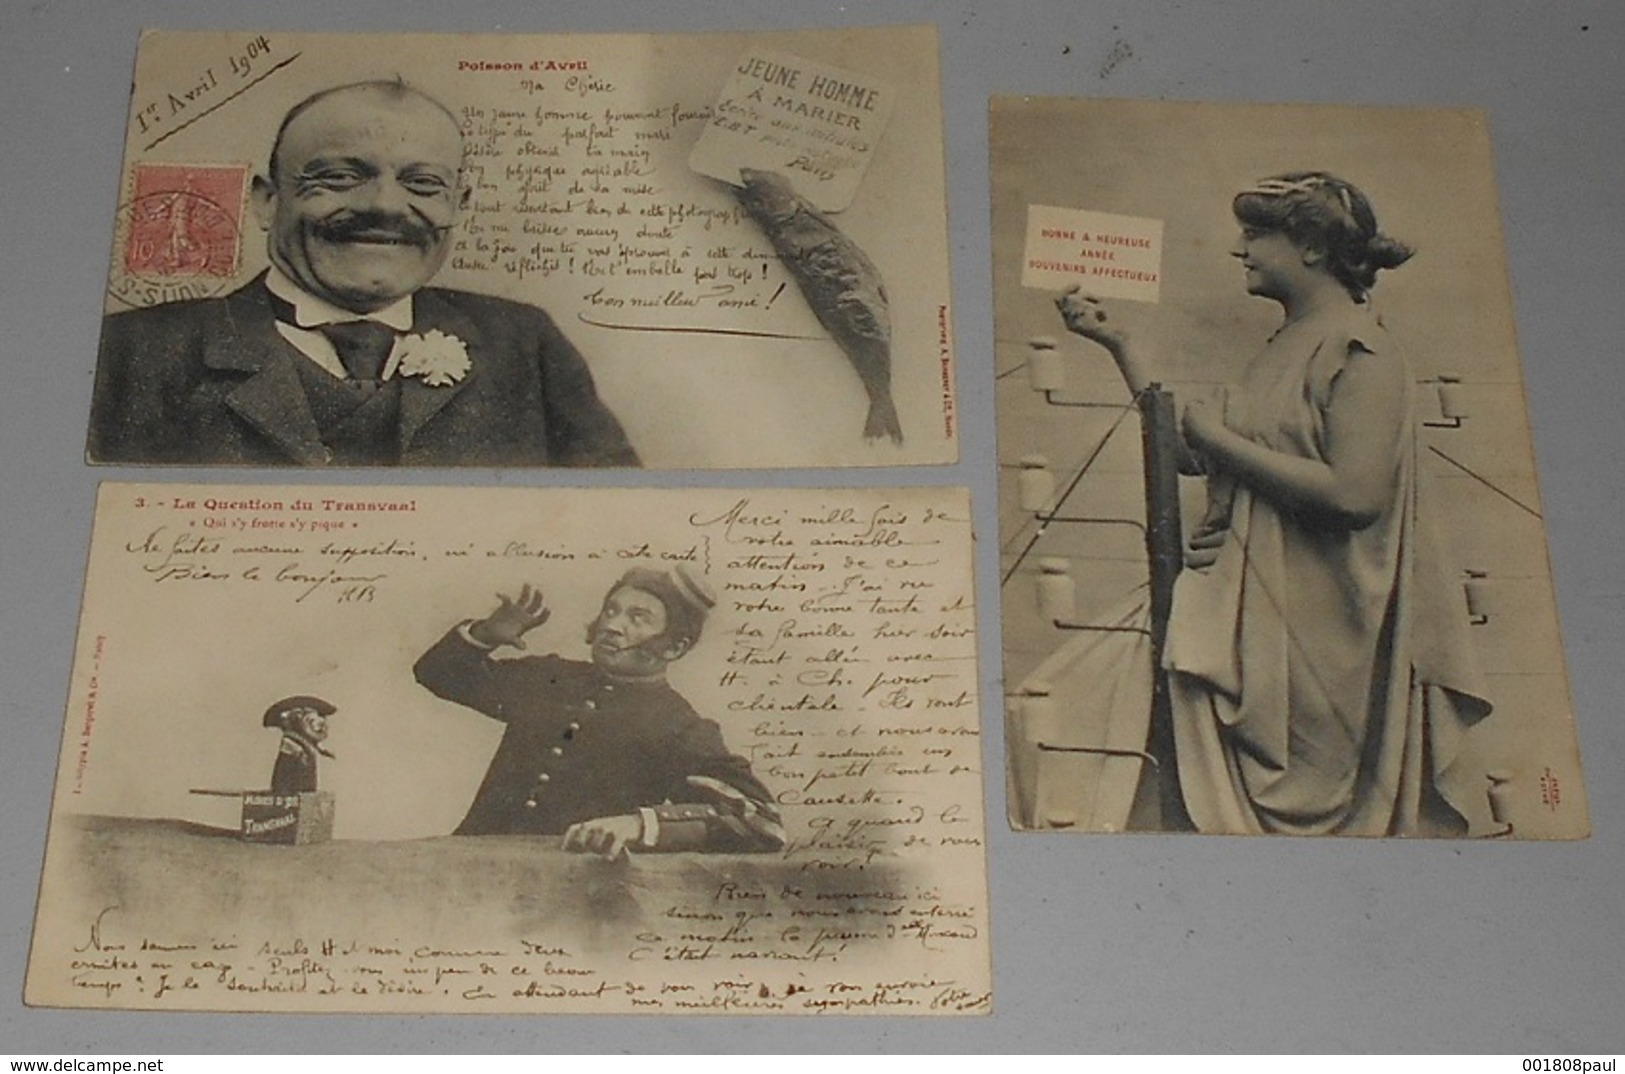 1er Avril 1904
Poisson d'Avril
Ma Chérie
Un jeune homme pouvant fournir
Le type du parfait mari
Désire obtenir ta main
Son physique agréable
Le bon goût de sa mise
Le tout ressortant bien de cette photographie
Ne me laisse aucun doute
à la joie que tu vas éprouver à cette demande
réfléchis ! Ne t'emballe pas trop !
Ton meilleur ami !
JEUNE HOMME
À MARIER
Écrire aux initiales
E.B.T poste restante
Paris
10
Phototypie A. Bergeret & Cie, Nancy
BONNE & HEUREUSE
ANNÉE
SOUVENIRS AFFECTUEUX
3. - La Question du Transvaal
« Qui s'y frotte s'y pique »
Ne faites aucune supposition, ni allusion à cette carte
Bien le bonjour
HB
Merci mille fois de
votre aimable
attention de ce
matin - J'ai vu
votre bonne tante et
sa famille hier soir
étant allée avec
H. à Ch. pour
clientèle - Ils vont
bien - et nous avons
fait ensemble un
bon petit bout de
causette.
A quand le
plaisir de vous
voir !
Rien de nouveau ici
sinon que nous avons enterré
ce matin la
C'était navrant !
Nous sommes ici seuls H et moi, comme deux
ermites en cage - Profitez-vous un peu de ce beau
temps ? Je le souhaite et le désire. En attendant de vous voir, je vous envoie
mes meilleures sympathies. Votre
MINES D'OR
TRANSVAAL
Phototypie A. Bergeret & Cie. - Nancy
delcampe.com
001808paul